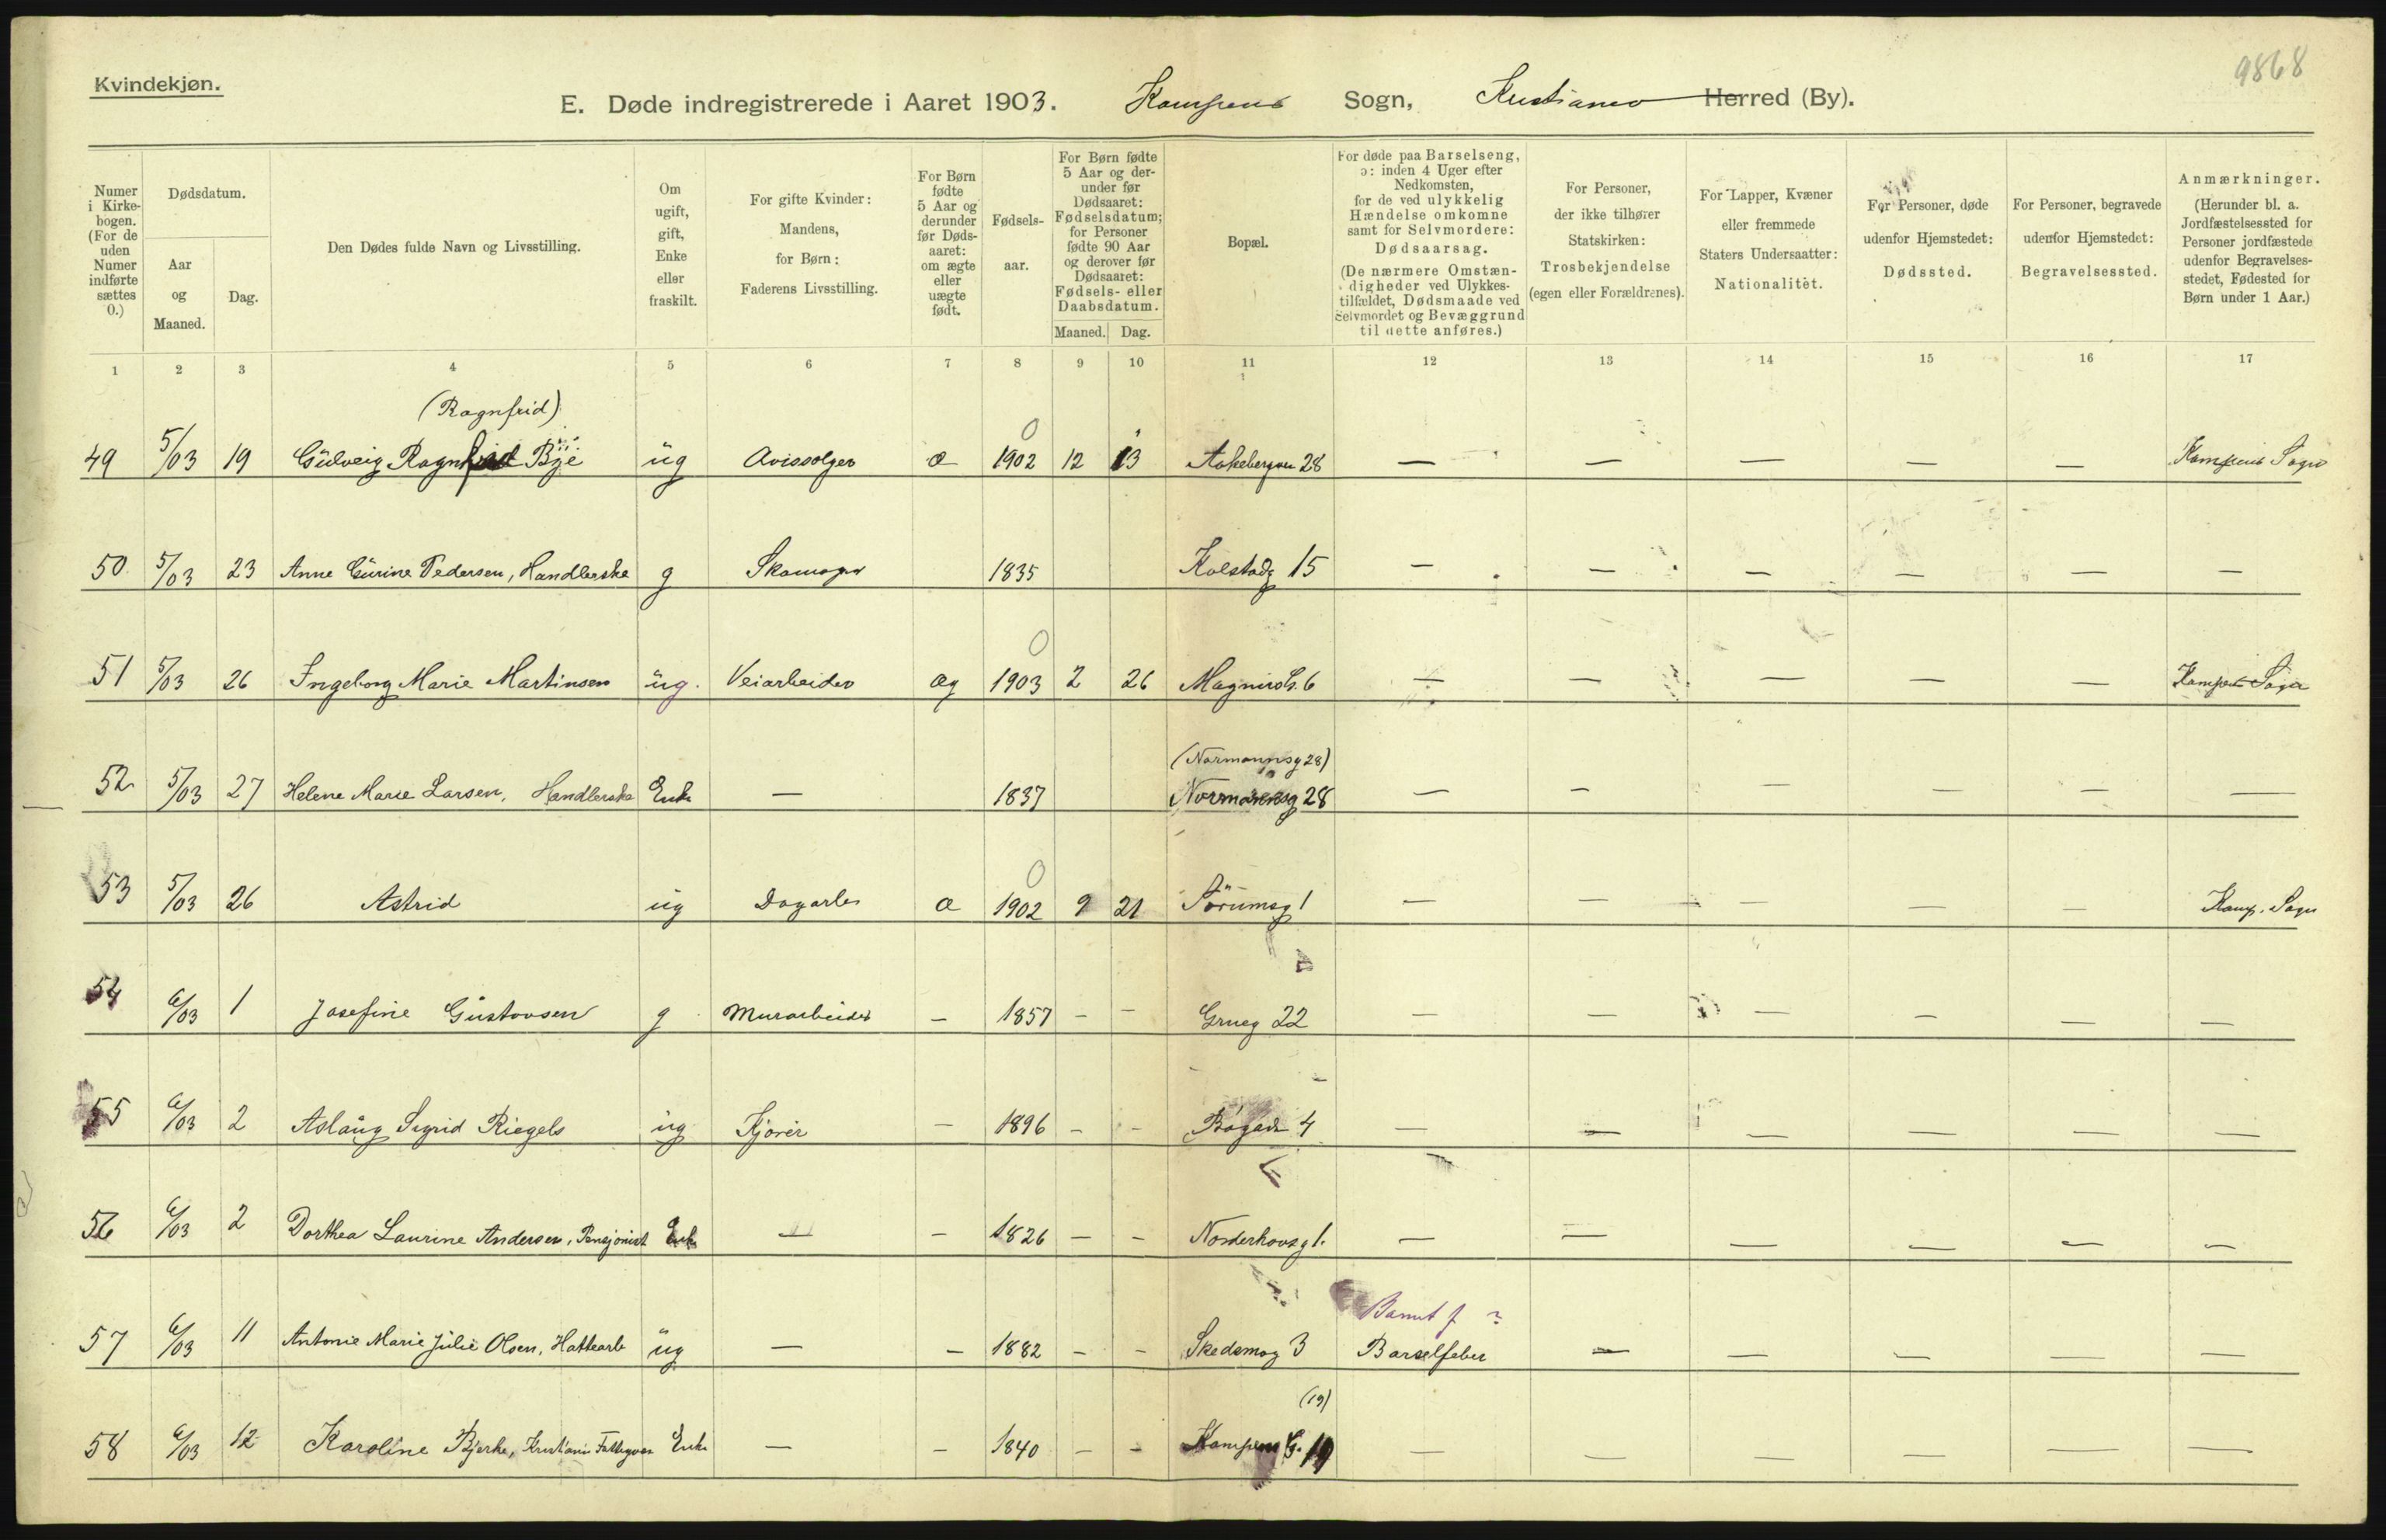 9868
Kvindekjøn.
E. Døde indregistrerede i Aaret 1903. Kampens Sogn, Kristiania Herred (By).
Numer i Kirkebogen. (For de uden Numer indførte sættes 0.)
Dødsdatum.
Aar og Maaned.
Dag.
Den Dødes fulde Navn og Livsstilling.
Om ugift, gift, Enke eller fraskilt.
For gifte Kvinder: Mandens, for Børn: Faderens Livsstilling.
For Børn fødte 5 Aar og derunder før Dødsaaret: om ægte eller uægte født.
Fødselsaar.
For Børn fødte 5 Aar og derunder før Dødsaaret: Fødselsdatum; for Personer fødte 90 Aar og derover før Dødsaaret: Fødsels- eller Daabsdatum.
Maaned. Dag.
Bopæl.
For døde paa Barselseng, ɔ: inden 4 Uger efter Nedkomsten, for de ved ulykkelig Hændelse omkomne samt for Selvmordere: Dødsaarsag. (De nærmere Omstændigheder ved Ulykkestilfældet, Dødsmaade ved Selvmordet og Bevæggrund til dette anføres.)
For Personer, der ikke tilhører Statskirken: Trosbekjendelse (egen eller Forældrenes).
For Lapper, Kvæner eller fremmede Staters Undersaatter: Nationalitet.
For Personer, døde udenfor Hjemstedet: Dødssted.
For Personer, begravede udenfor Hjemstedet: Begravelsessted.
Anmærkninger. (Herunder bl. a. Jordfæstelsessted for Personer jordfæstede udenfor Begravelsesstedet, Fødested for Børn under 1 Aar.)
1 2 3 4 5 6 7 8 9 10 11 12 13 14 15 16 17
(Ragnfrid) 0
49 5/03 19 Gudveig Ragnfrid Bye ug Avissælger 1902 12 13 Aakebergvn 28 — — — — — Kampens Sogn
50 5/03 23 Anne Gurine Pedersen, Handlerske g Skomager 1835 Kolstadg 15 — — — — — —
0
51 5/03 26 Ingeborg Marie Martinsen ug. Veiarbeider æg 1903 2 26 Magnus G. 6 — — — — — Kampens Sogn
(Normannsg 28)
52 5/03 27 Helene Marie Larsen, Handlerske Enke — 1837 Normannsg 28 — — — — — —
0
53 5/03 26 Astrid ug Dagarb 1902 9 21 Sørumsg 1 — — — — — Kamp. Sogn
54 6/03 1 Josefine Gustavsen g Murarbeider — 1857 - - Grueg 22 — — — — — —
55 6/03 2 Aslaug Sigrid Riegels ug — 1896 - - Bøgade 4 — — — — — —
56 6/03 2 Dorthea Laurine Andersen, Pensjonist Enke — — 1826 - - Norderhovsg 1. — — — — — —
Barnet f ?
57 6/03 11 Antonie Marie Julie Olsen, Hattearb ug — — 1882 - - Skedsmog 3 Barselfeber — — — — —
(19)
58 6/03 12 Karoline Bjerke, Kristiania Fattigvæs Enke — — 1840 - - Kampens G. 19 — — — — — —